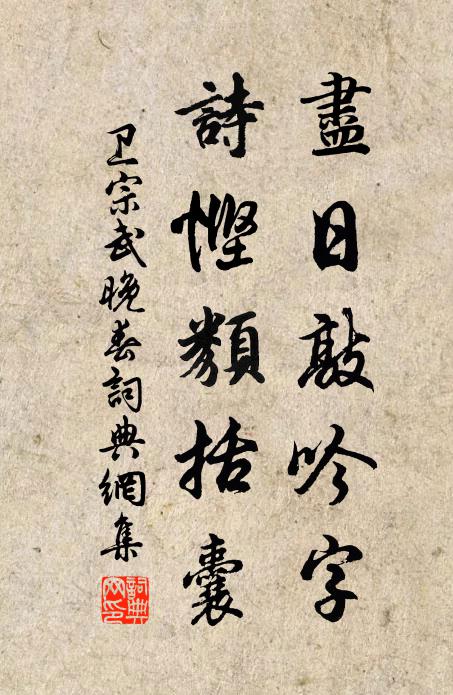 盡日敲吟字
詩慳類括囊
卫宗武晚春詞典網集
詞典网印